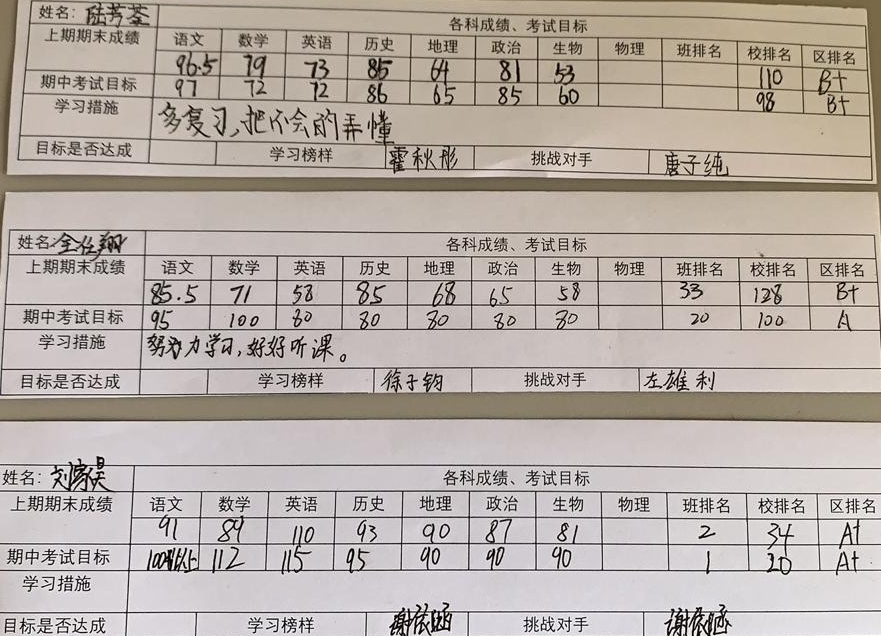 姓名：陆芳荃 各科成绩、考试目标
上期期末成绩 语文 数学 英语 历史 地理 政治 生物 物理 班排名 校排名 区排名
96.5 79 73 85 64 81 53 110 B+
期中考试目标 97 72 72 86 65 85 60 98 B+
学习措施 多复习,把不会的弄懂
目标是否达成 学习榜样 霍秋彤 挑战对手 唐子纯
姓名: 各科成绩、考试目标
上期期末成绩 语文 数学 英语 历史 地理 政治 生物 物理 班排名 校排名 区排名
85.5 71 58 85 68 65 58 33 128 B+
期中考试目标 95 100 80 80 80 80 80 20 100 A
学习措施 努力学习,好好听课。
目标是否达成 学习榜样 徐子钧 挑战对手 左雄利
姓名: 各科成绩、考试目标
上期期末成绩 语文 数学 英语 历史 地理 政治 生物 物理 班排名 校排名 区排名
91 89 110 93 90 87 81 2 34 A+
期中考试目标 100以上 112 115 95 90 90 90 1 20 A+
学习措施
目标是否达成 学习榜样 谢依涵 挑战对手 谢依涵